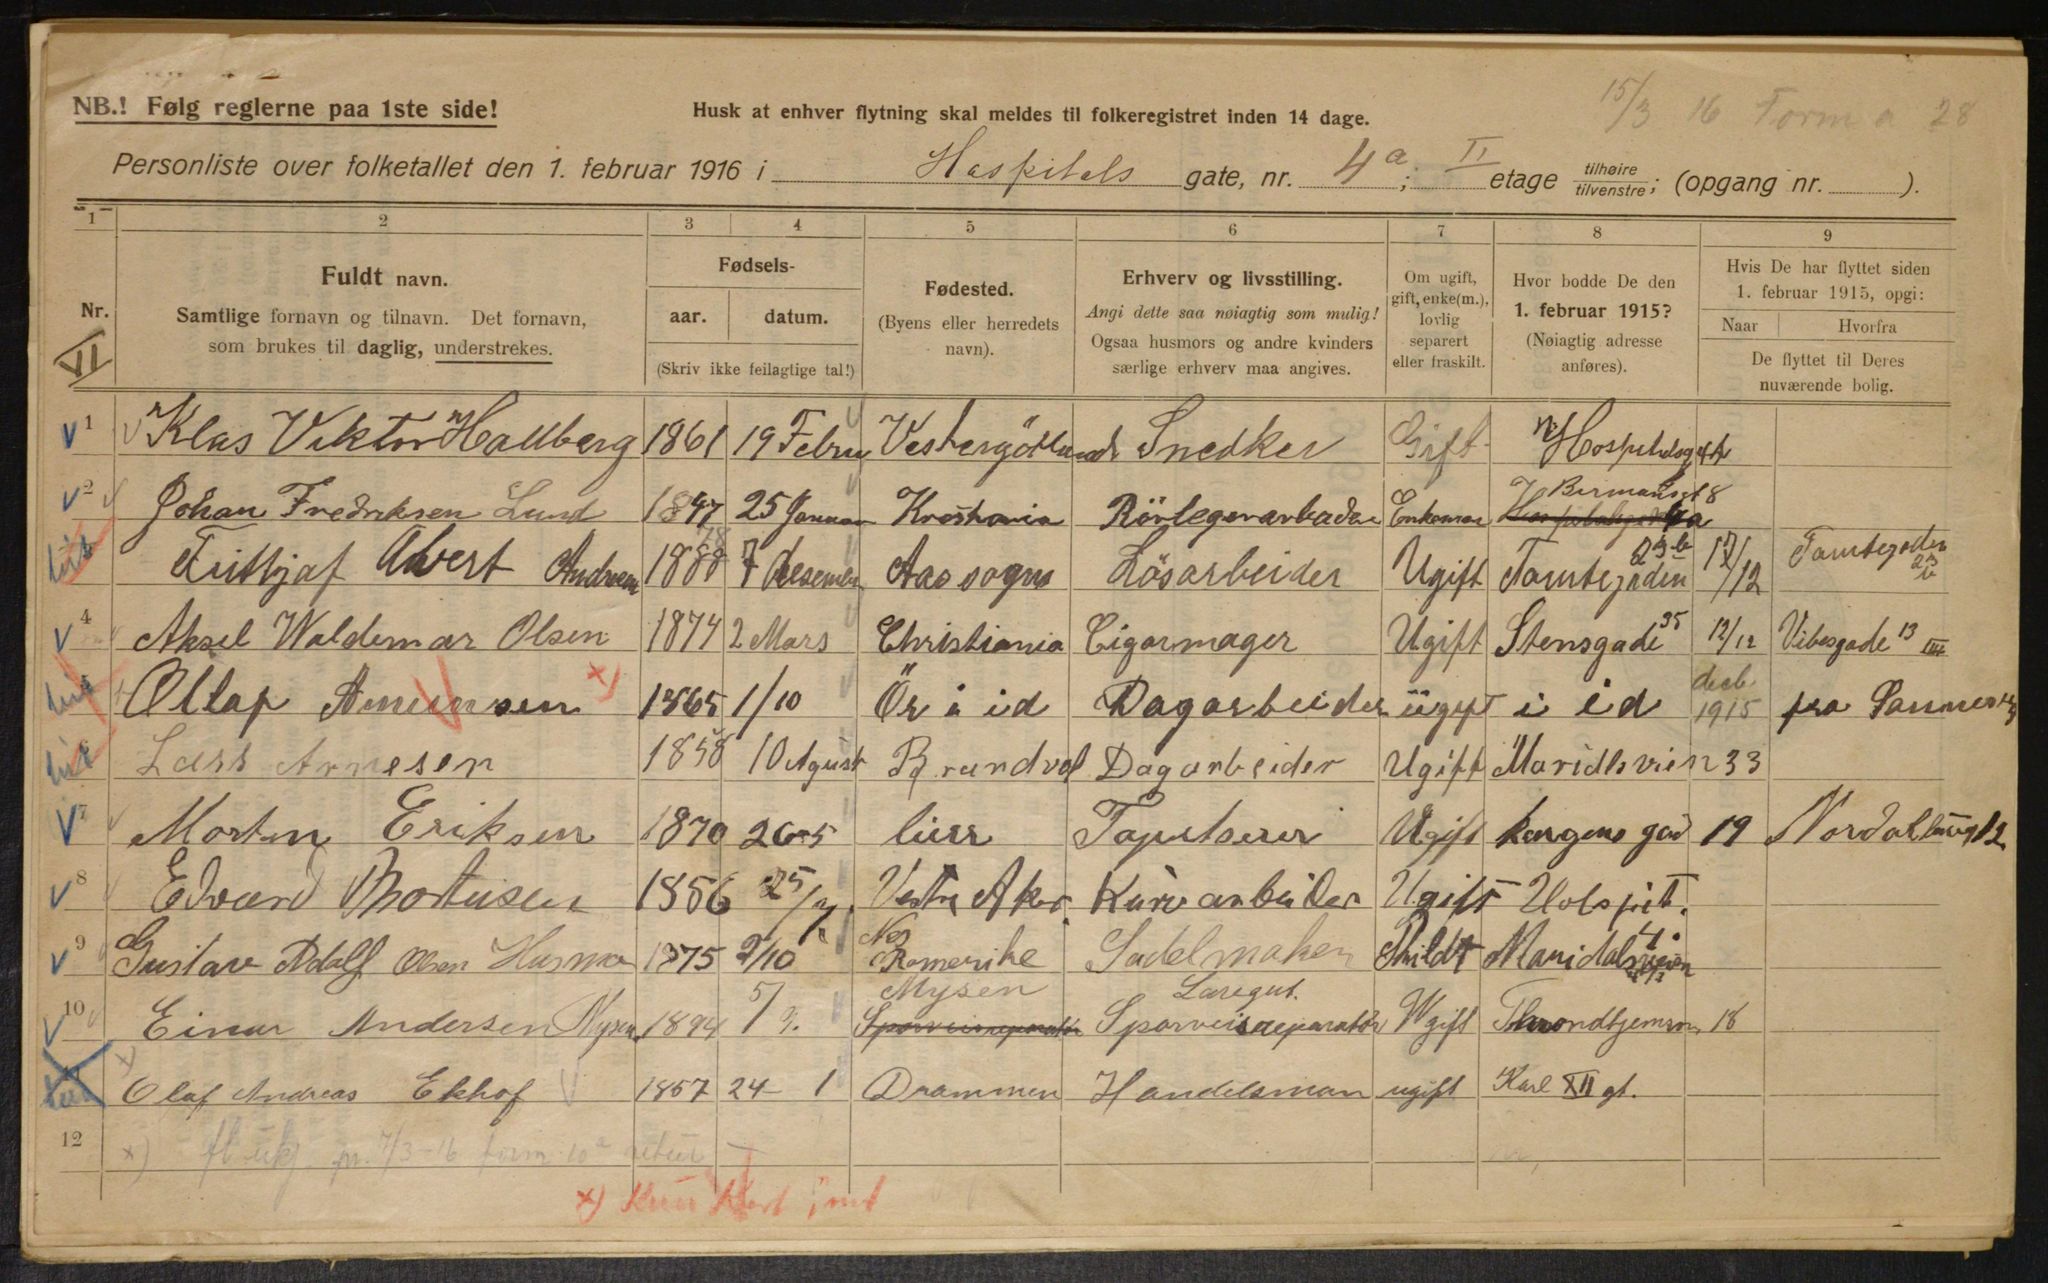 NB.! Følg reglerne paa 1ste side!
Husk at enhver flytning skal meldes til folkeregistret inden 14 dage.
15/3 16 Form a 28
Personliste over folketallet den 1. februar 1916 i Hospitals gate, nr. 4a; II etage tilhøire/tilvenstre; (opgang nr. ).
1 2 3 4 5 6 7 8 9
Nr.
Fuldt navn.
Samtlige fornavn og tilnavn. Det fornavn,
som brukes til daglig, understrekes.
Fødsels-
aar. datum.
(Skriv ikke feilagtige tal!)
Fødested.
(Byens eller herredets
navn).
Erhverv og livsstilling.
Angi dette saa nøiagtig som mulig!
Ogsaa husmors og andre kvinders
særlige erhverv maa angives.
Om ugift,
gift, enke(m.),
lovlig
separert
eller fraskilt.
Hvor bodde De den
1. februar 1915?
(Nøiagtig adresse
anføres).
Hvis De har flyttet siden
1. februar 1915, opgi:
Naar Hvorfra
De flyttet til Deres
nuværende bolig.
VII
1 Klas Viktor Hallberg 1861 19 Febru Vestergötland Snedker Gift
2 Johan Fredriksen Lund 1847 25 Januar Kristiania Rörlegerarbeder Enkeman
Andresen 1888 7 desember Aas sogn Lösarbeider Ugift Tomtegaden 23 b 17/12 Tomtegaden 23 b
4 Aksel Waldemar Olsen 1874 2 Mars Christiania Cigarmager Ugift Stensgade 35 12/12 Vibesgade 13 III
1865 1/10 Ör i id Dagarbeider ügift i id decb 1915 fra
6 Lars Arnesen 1858 10 Agust Brandvol Dagarbeider Ugift Maridlsvien 33
7 Morten Eriksen 1870 26-5 lier Tapetserer Ugift 19
8 Edvard Mortensen 1856 25/ Vestre Aker Kurvarbeider Ugift
9 Gustav Adolf Olsen 1875 2/10 Nes Romerike Sadelmaker Skildt Maridalsveien
10 Einar Andersen Nysen 1894 5/9. Mysen Sporveisreparatør Ugift Throndhjemsvn 18
Olaf Andreas Ekhof 1857 24 1 Drammen Handelsman ugift Karl XII gt.
12 x) 7/3-16 form 10a retur
x) Kun Kort